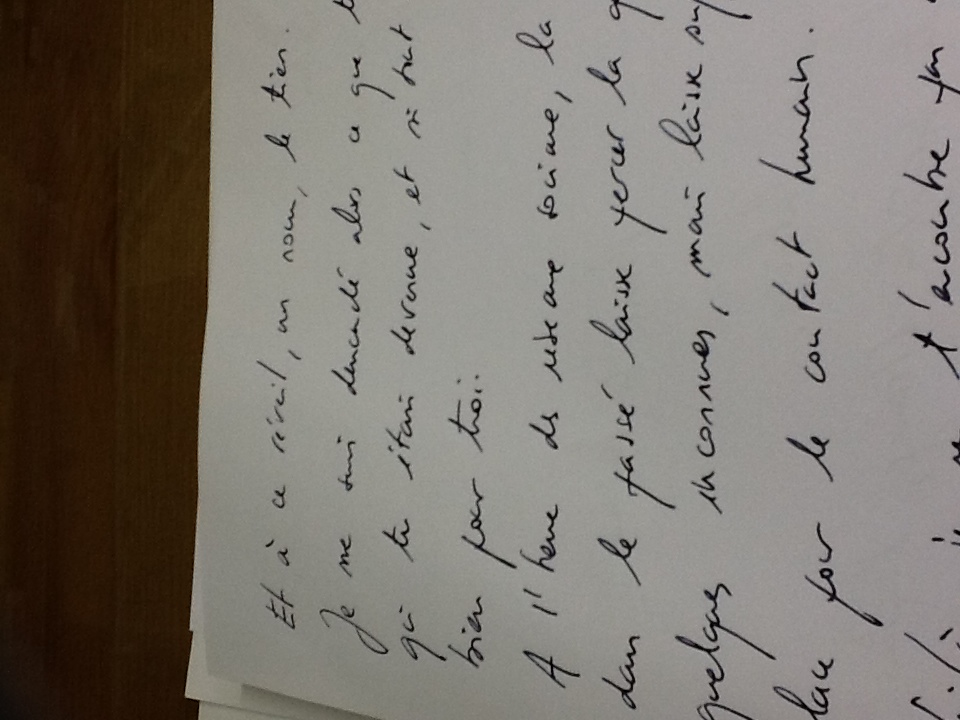 Et à ce réveil, un nom, le tien.
Je me suis demandé alors ce que t
qui tu étais devenue, et si tout
bien pour toi.
A l'heure des réseaux sociaux, la
dans le passé laisse percer la
quelques inconnues, mais laisse
place pour le contact humain.
t'incombe